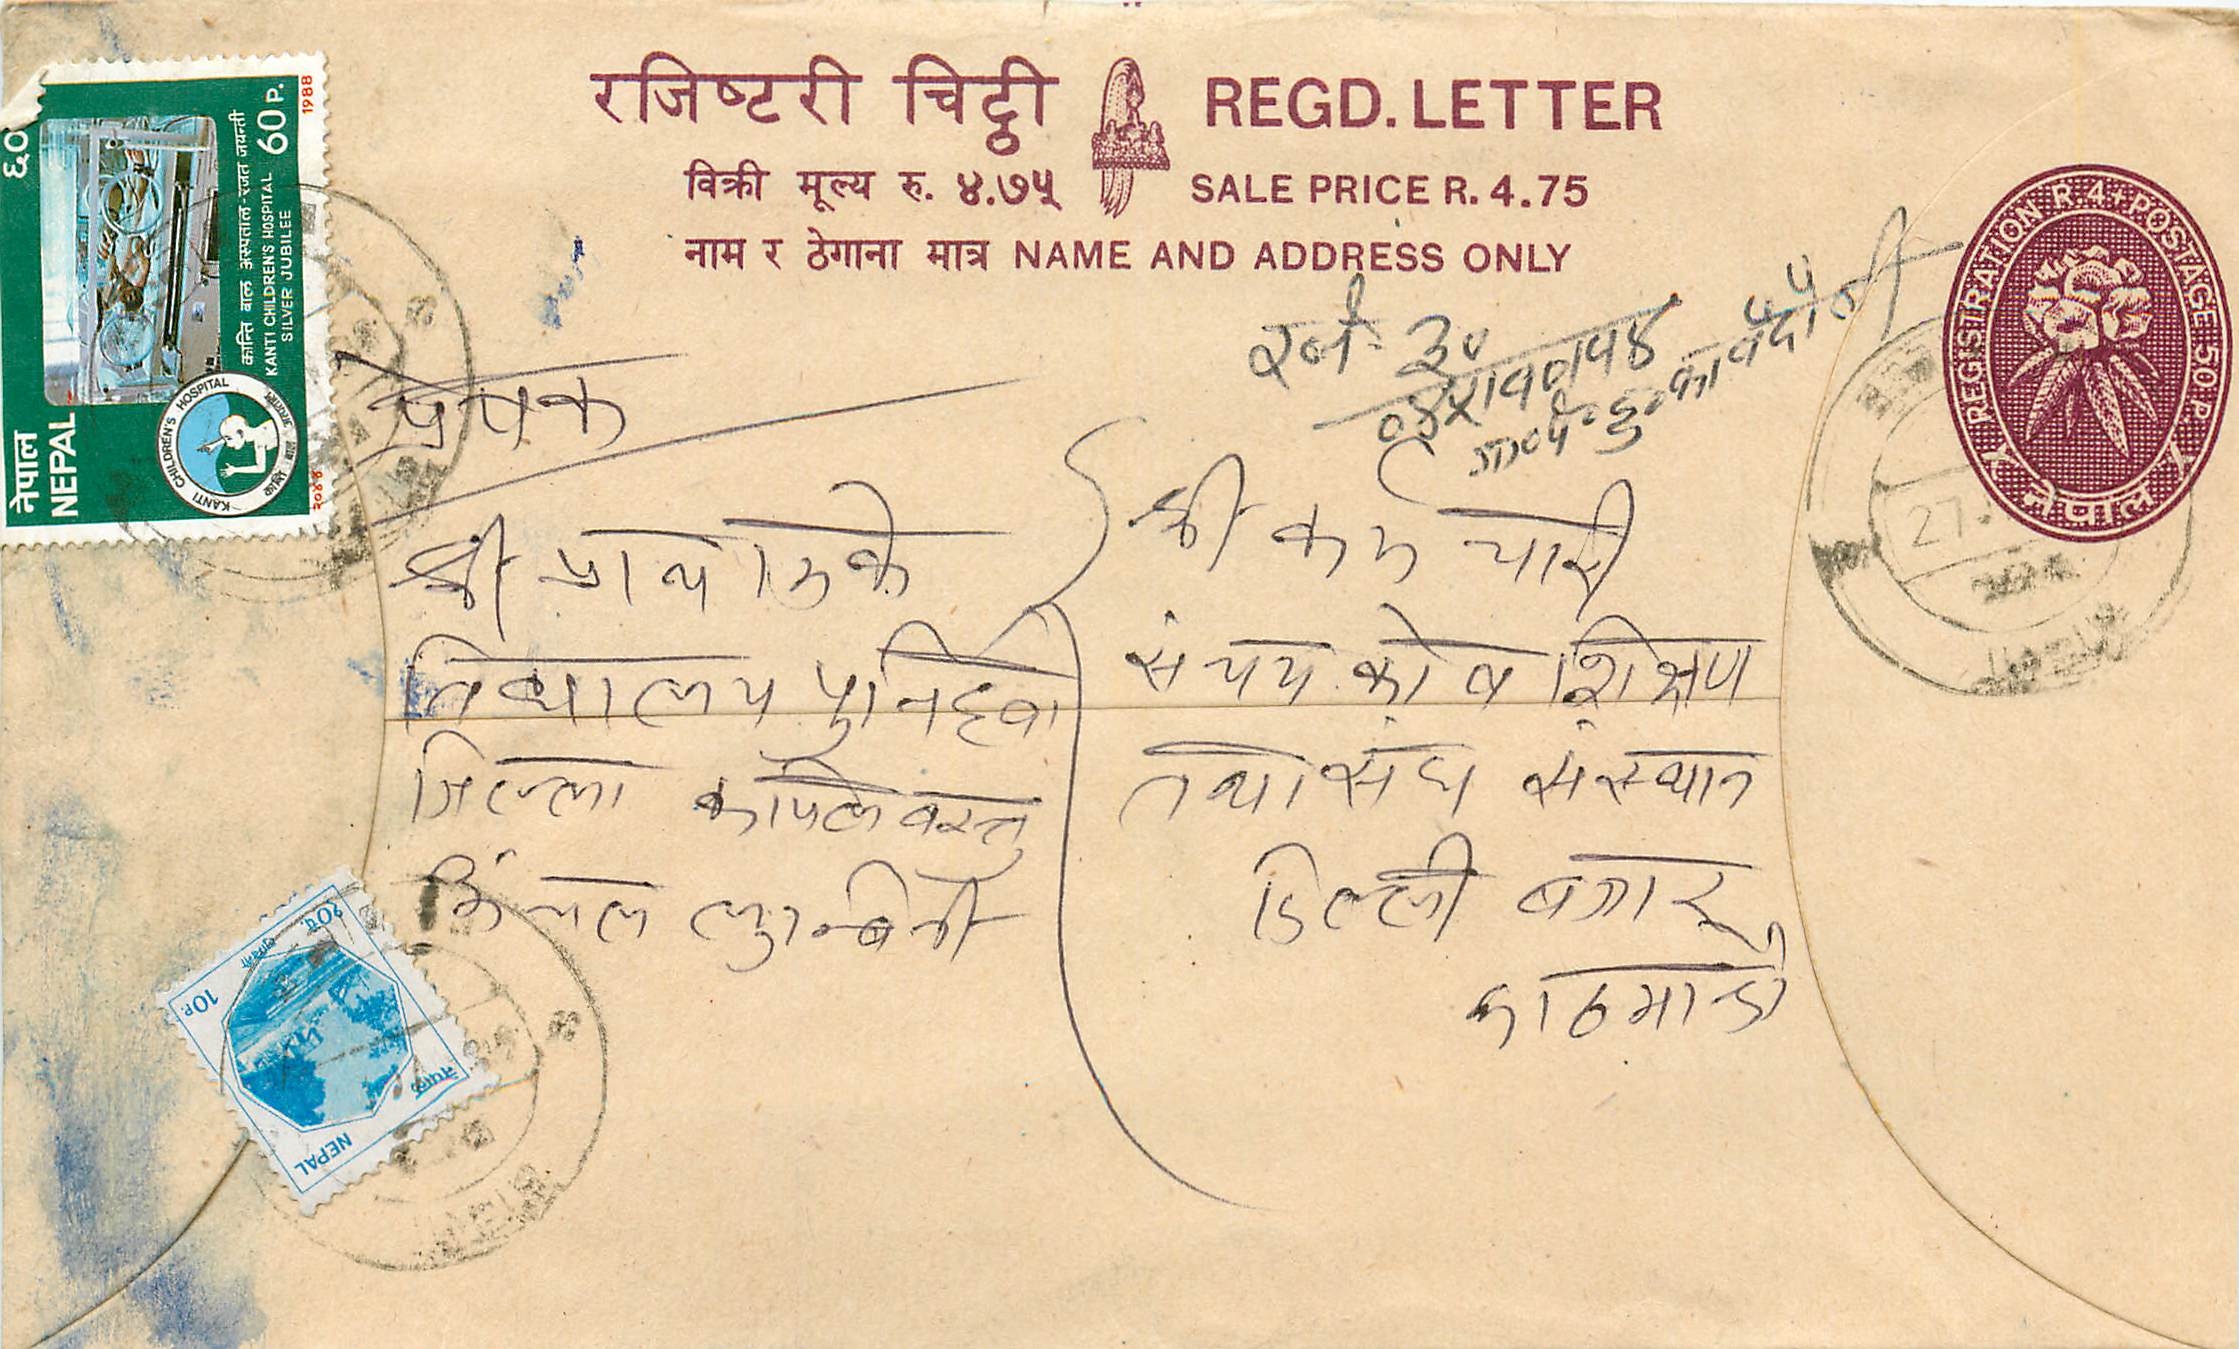 रजिष्टरी चिट्ठी REGD. LETTER
विक्री मूल्य रु. ४.७५ SALE PRICE R. 4.75
नाम र ठेगाना मात्र NAME AND ADDRESS ONLY
REGISTRATION R.4+POSTAGE 50 P.
नेपाल
६०
नेपाल
NEPAL
कान्ति बाल अस्पताल-रजत जयन्ती
KANTI CHILDREN'S HOSPITAL 60 P.
SILVER JUBILEE
1988
२०४४
KANTI CHILDREN'S HOSPITAL
र.नं. ३०
प्रेषक
श्री प्रा वि
विद्यालय
जिल्ला कपिलवस्तु
अंचल लुम्बिनी
श्री कर्मचारी
संचय कोष शिक्षण
तथा संघ संस्थान
डिल्ली बजार
काठमाडौ
10 P.
१० पै.
नेपाल
NEPAL
27